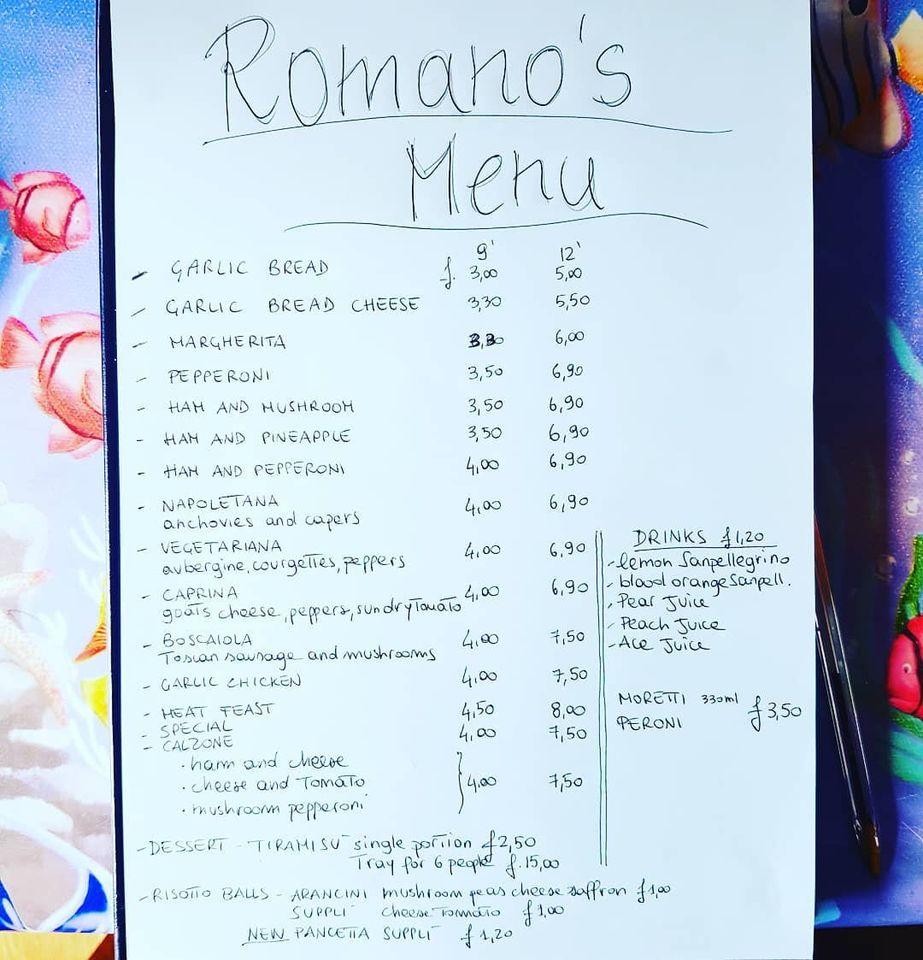 Romano's
Menu
9' 12'
- GARLIC BREAD £. 3,00 5,00
- GARLIC BREAD CHEESE 3,30 5,50
- MARGHERITA 3,30 6,00
- PEPPERONI 3,50 6,90
- HAM AND MUSHROOM 3,50 6,90
- HAM AND PINEAPPLE 3,50 6,90
- HAM AND PEPPERONI 4,00 6,90
- NAPOLETANA 4,00 6,90
anchovies and capers
- VEGETARIANA 4,00 6,90
aubergine, courgettes, peppers
- CAPRINA 4,00 6,90
goats cheese, peppers, sundry Tomato
- BOSCAIOLA 4,00 7,50
Toscan sausage and mushrooms
- GARLIC CHICKEN 4,00 7,50
- MEAT FEAST 4,50 8,00
- SPECIAL 4,00 7,50
- CALZONE
• ham and cheese
• cheese and Tomato 4,00 7,50
• mushroom pepperoni
- DESSERT - TIRAMISU' single portion £2,50
Tray for 6 people £.15,00
- RISOTTO BALLS - ARANCINI mushroom peas cheese saffron £1,00
SUPPLI' cheese Tomato £1,00
NEW PANCETTA SUPPLI' £1,20
DRINKS £1,20
- lemon Sanpellegrino
- blood orange Sanpell.
- Pear Juice
- Peach Juice
- Ace Juice
MORETTI 330ml £3,50
PERONI